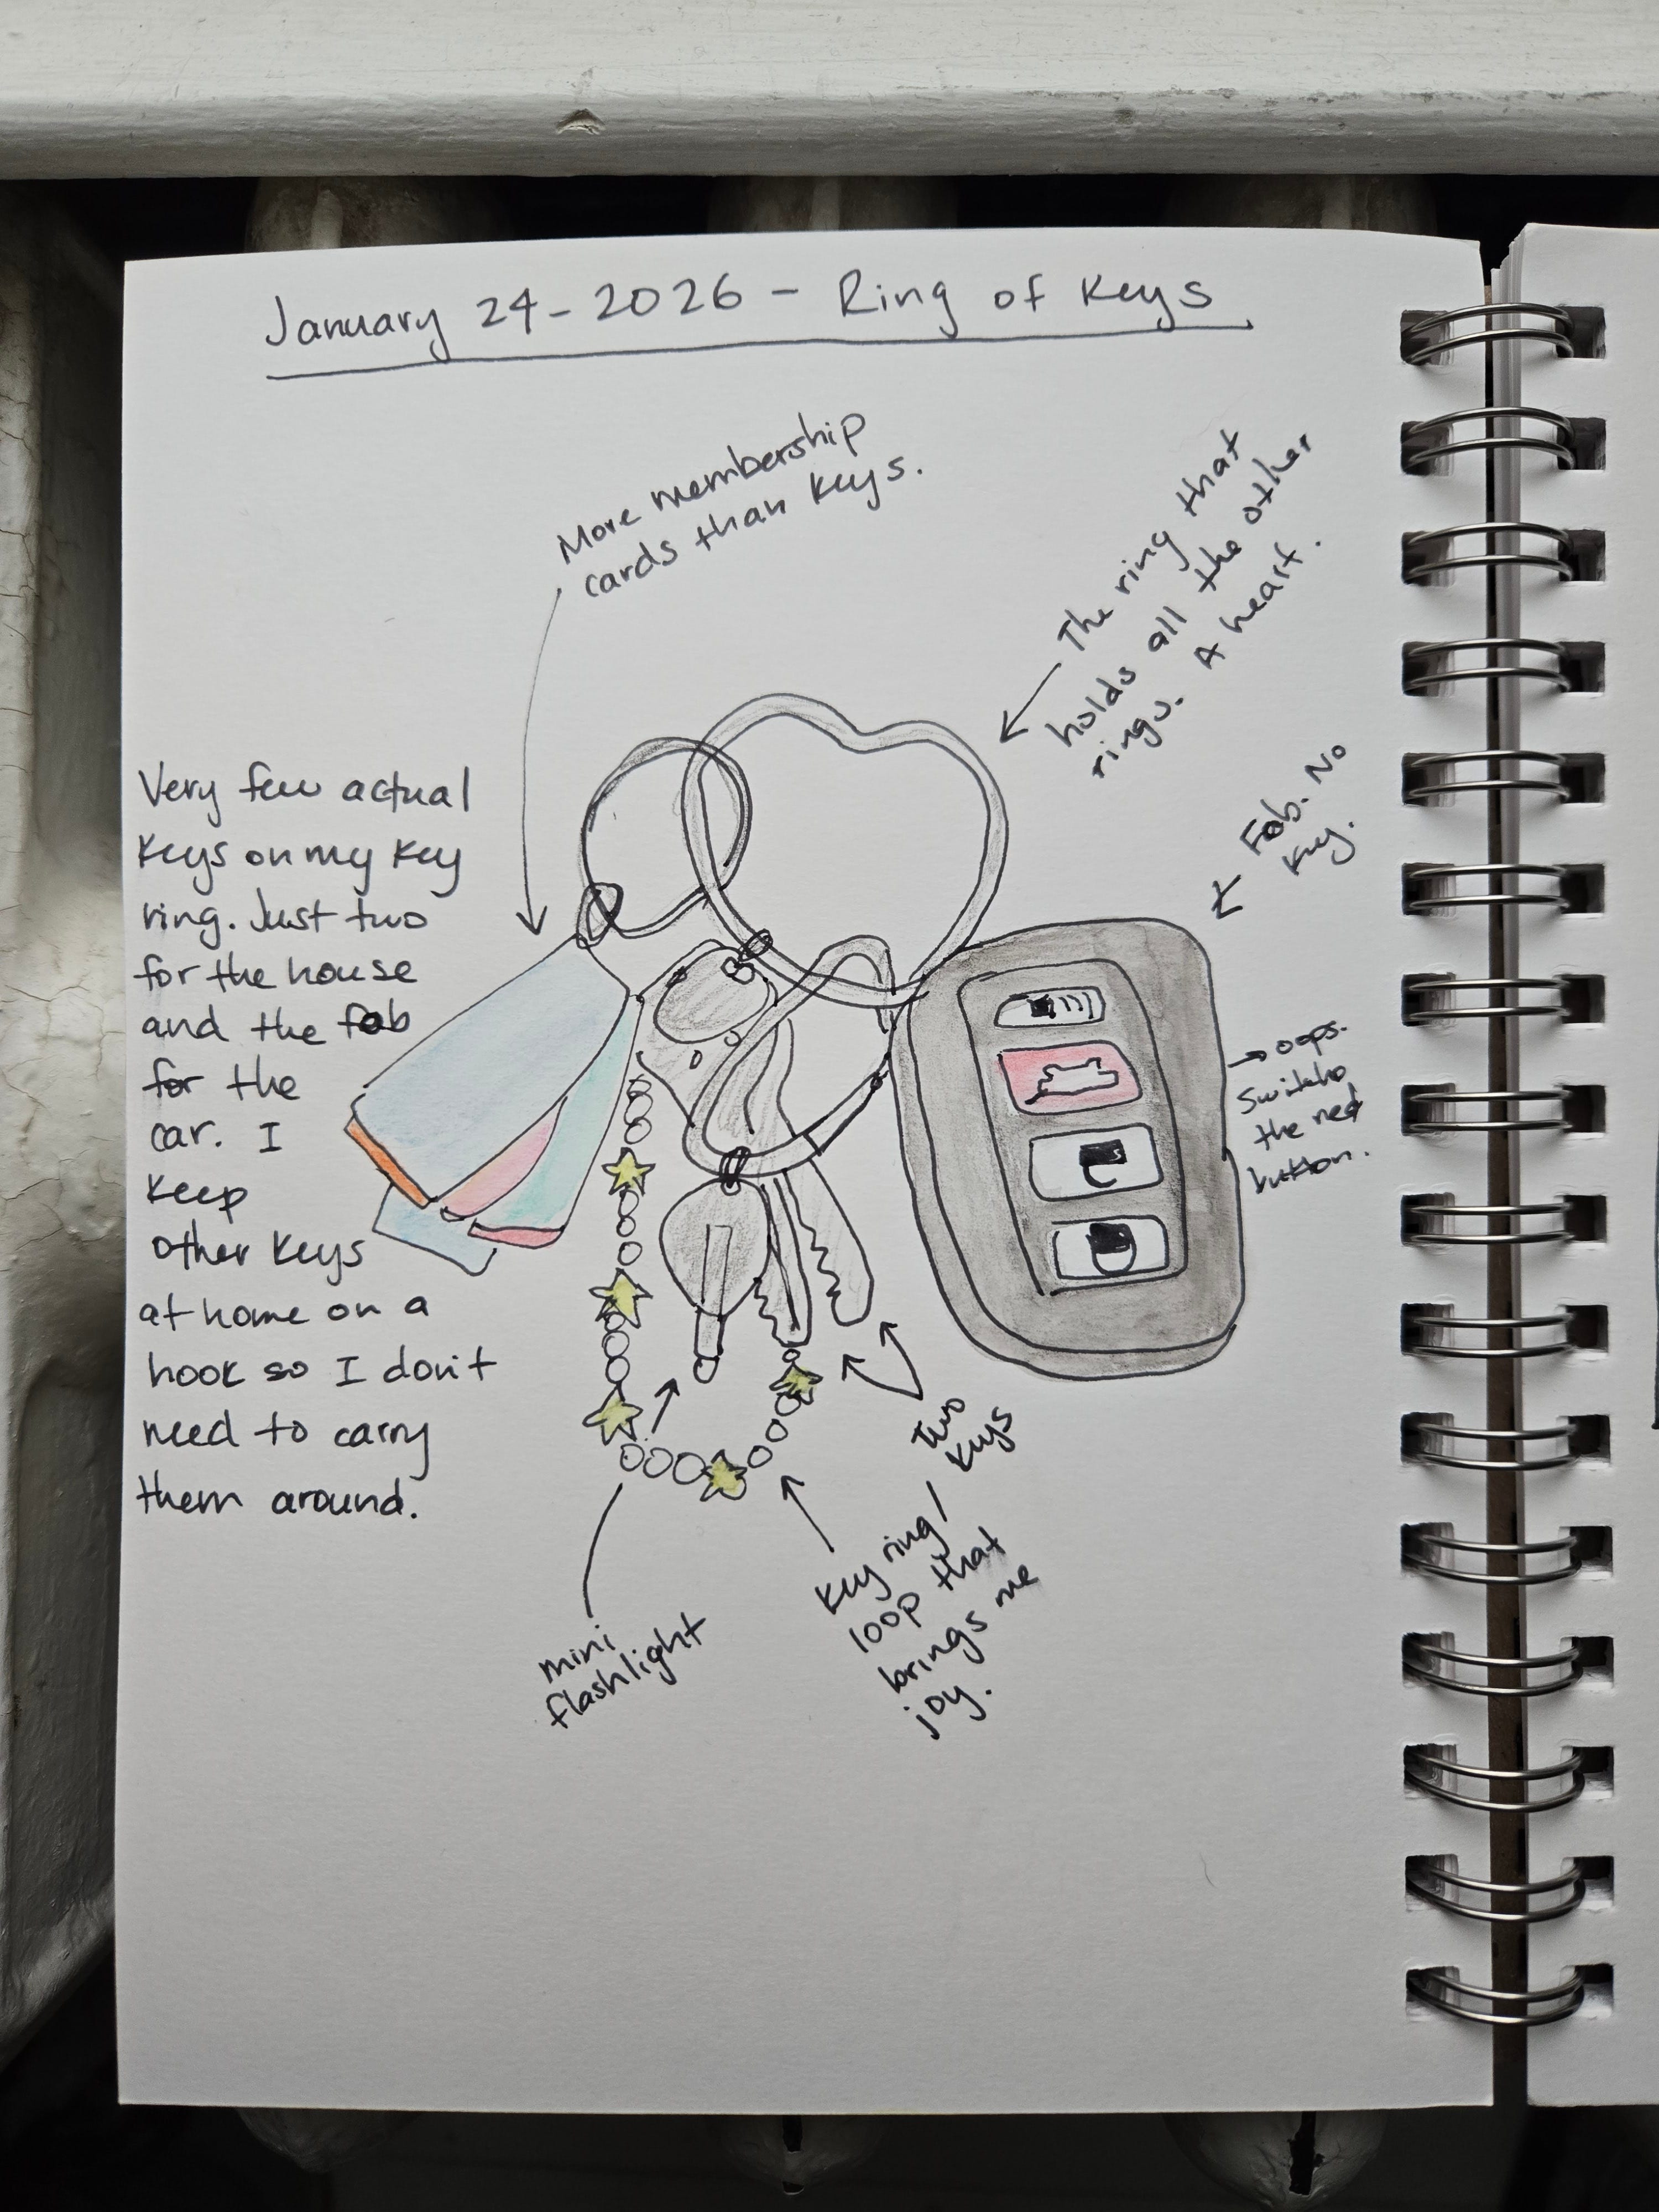 January 24-2026 - Ring of Keys
More membership
cards than keys.
The ring that
holds all the other
rings. A heart.
Fob. No
key.
Very few actual
keys on my key
ring. Just two
for the house
and the fob
for the
car. I
keep
other keys
at home on a
hook so I don't
need to carry
them around.
→ oops.
the red
button.
Two
keys
Key ring/
loop that
brings me
joy.
mini
flashlight